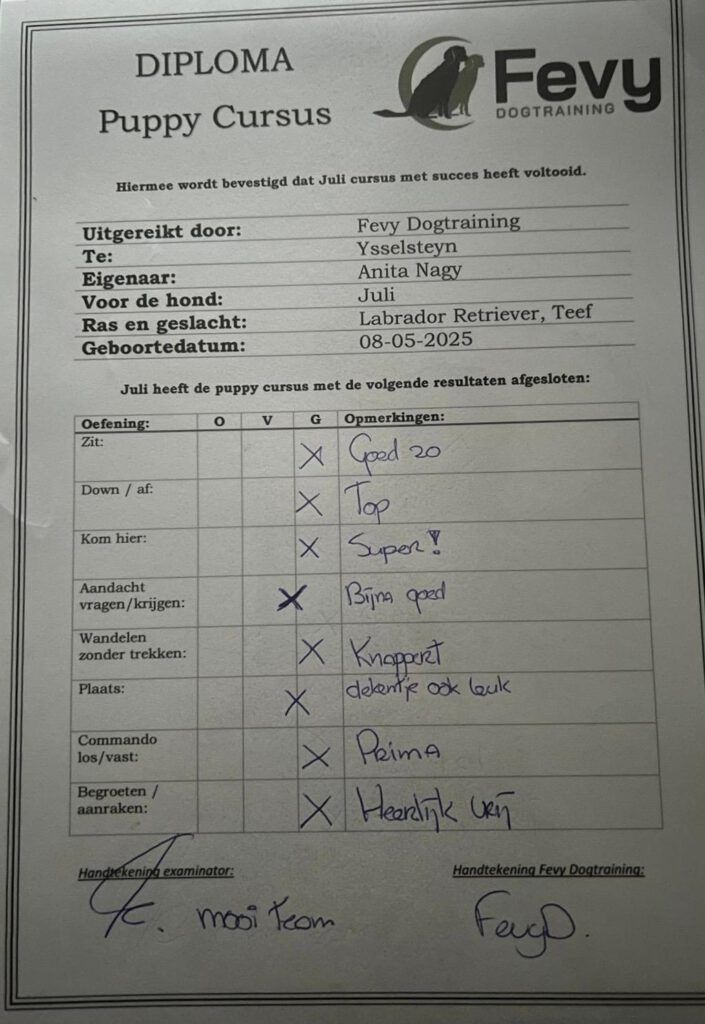 DIPLOMA
Puppy Cursus
Fevy
DOGTRAINING
Hiermee wordt bevestigd dat Juli cursus met succes heeft voltooid.
Uitgereikt door: Fevy Dogtraining
Te: Ysselsteyn
Eigenaar: Anita Nagy
Voor de hond: Juli
Ras en geslacht: Labrador Retriever, Teef
Geboortedatum: 08-05-2025
Juli heeft de puppy cursus met de volgende resultaten afgesloten:
Oefening: O V G Opmerkingen:
Zit: X Goed zo
Down / af: X Top
Kom hier: X Super!
Aandacht
vragen/krijgen: X Bijna goed
Wandelen
zonder trekken: X Knappert
Plaats: X dekentje ook leuk
Commando
los/vast: X Prima
Begroeten /
aanraken: X Heerlijk vrij
Handtekening examinator: Handtekening Fevy Dogtraining:
mooi team FevyD.